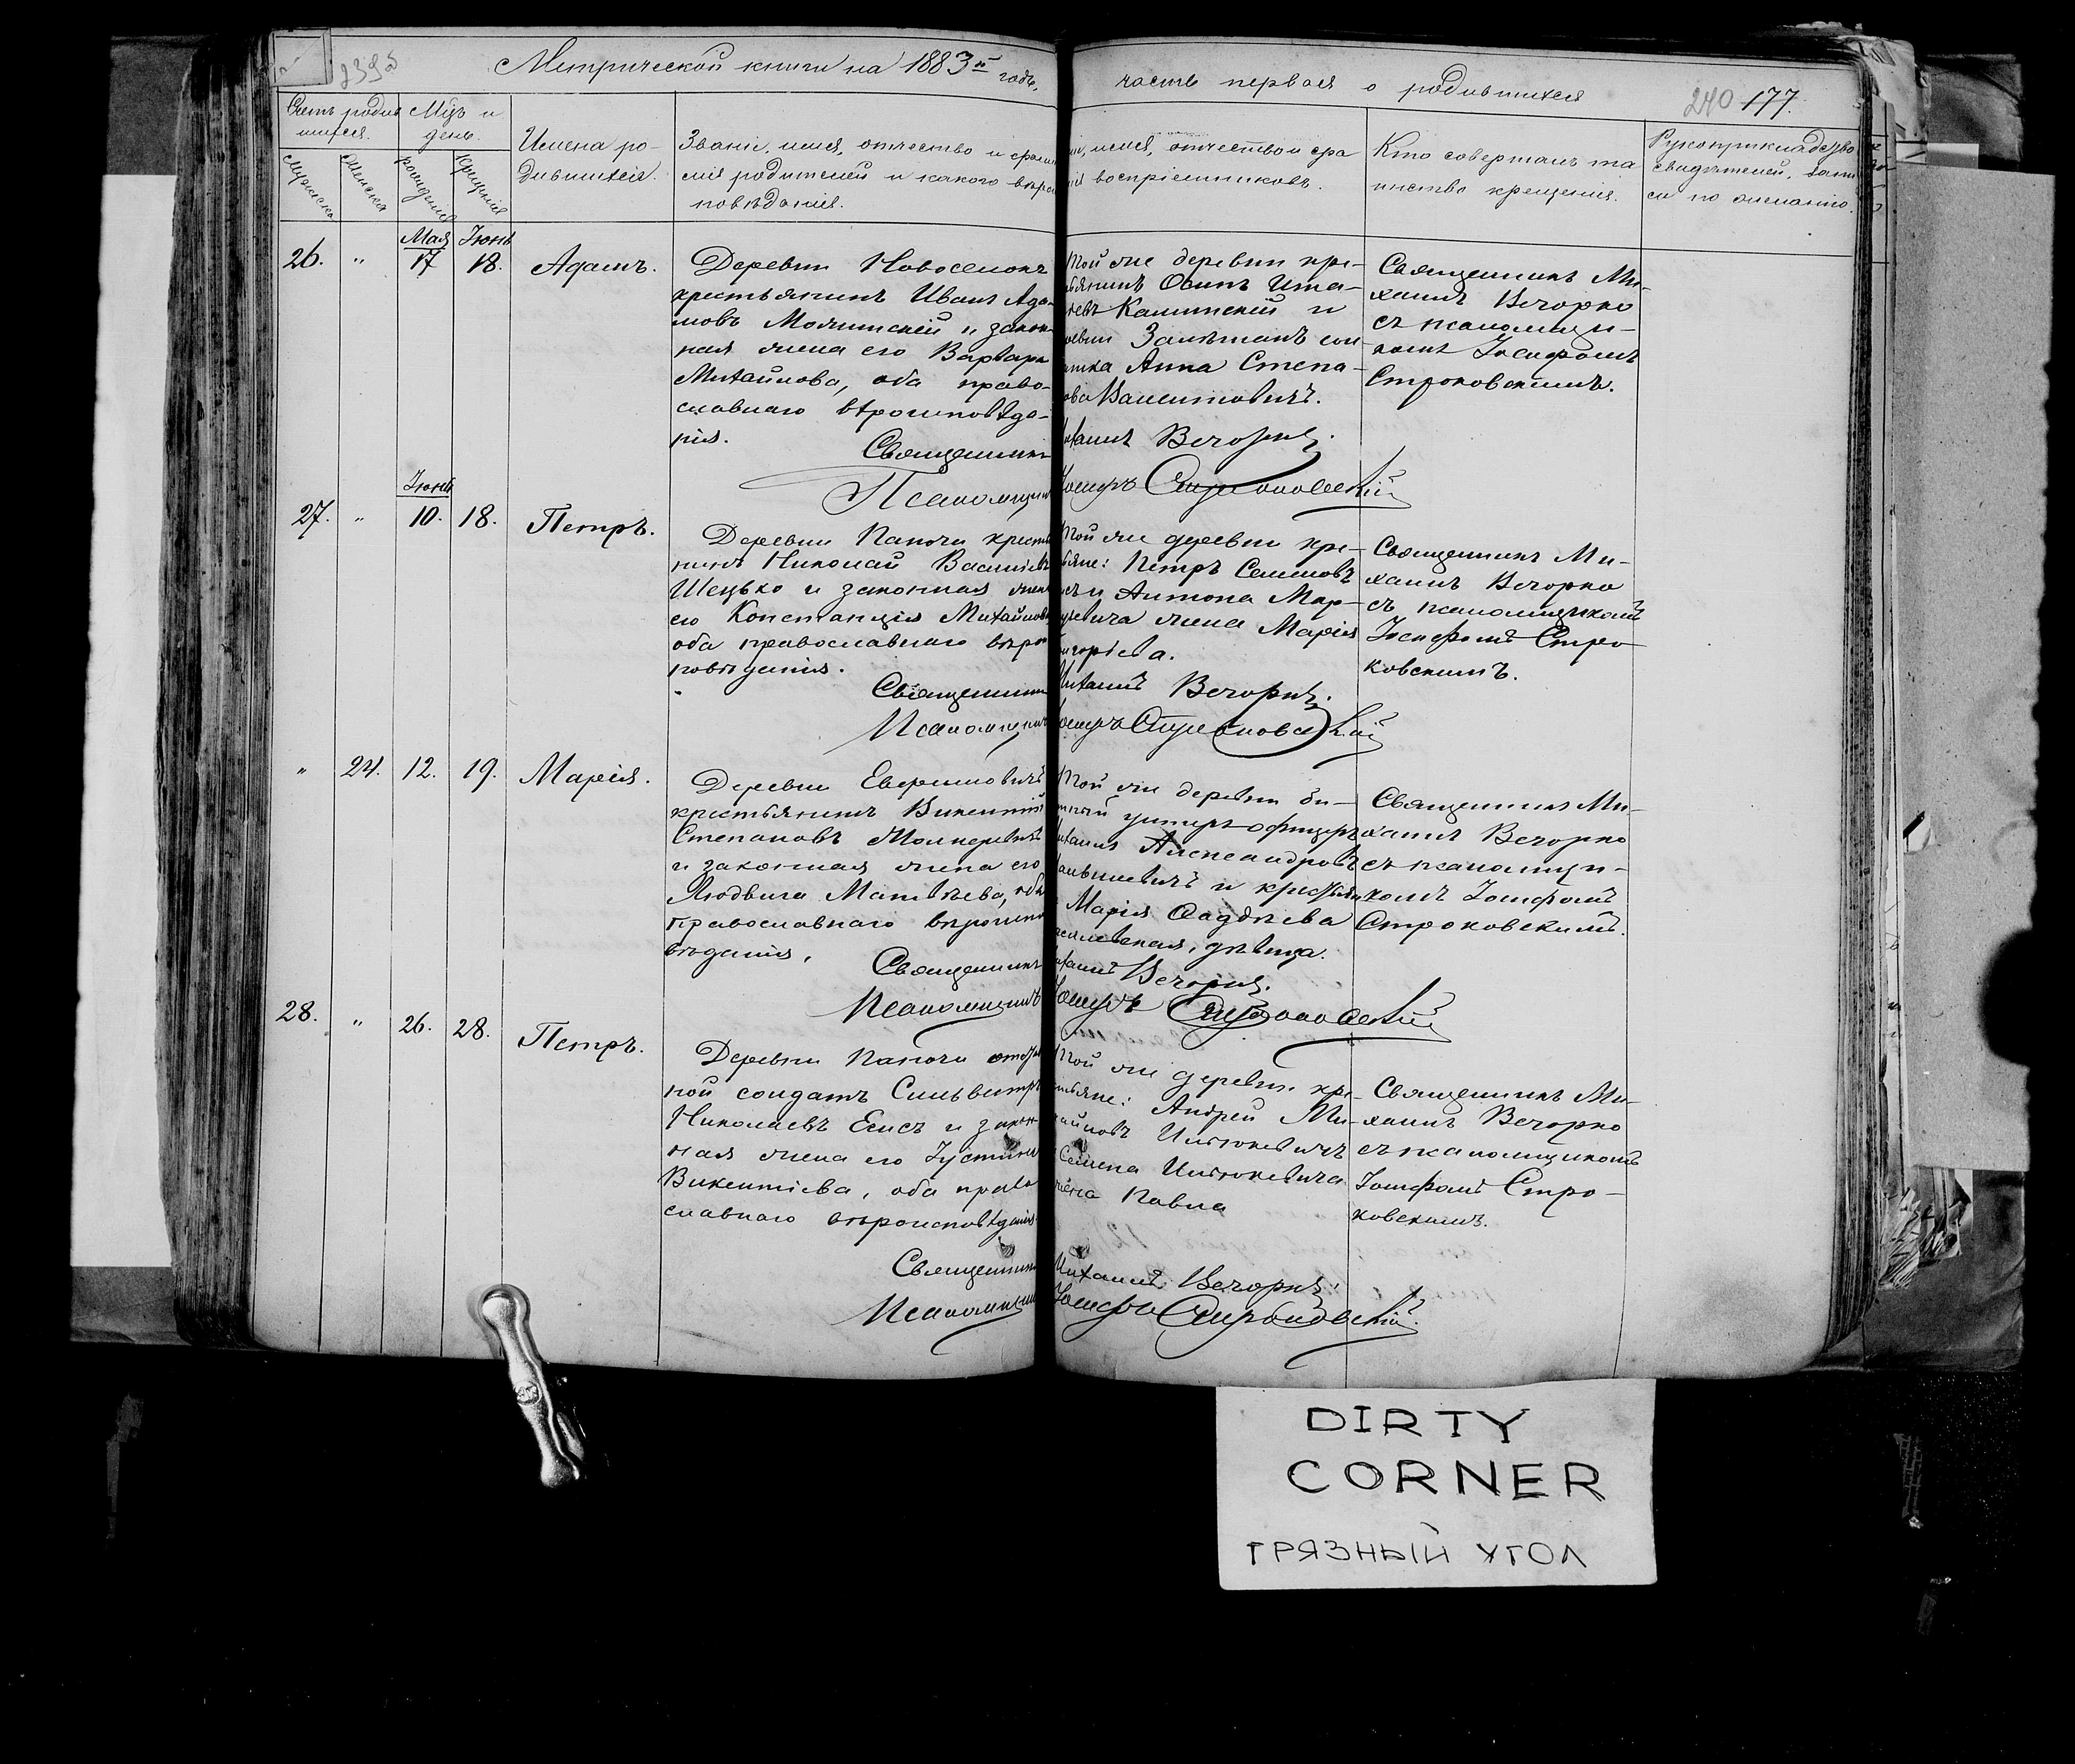 Метрической книги на 1883й годъ,
часть первая о родившихся
240 177.
Счетъ родив
шихся.
Мцъ и
день.
Имена ро-
дившихся.
Званіе, имя, отчество и фами
лія родителей и какого вѣро
повѣданія.
имя, отчество и фа
воспріемниковъ.
Кто совершалъ та
инство крещенія.
Рукоприкладство
свидѣтелей, запи
си по желанію.
Мужеска
Женска
рожденія
крещенія
Мая Іюнь
26. " 17 18. Адамъ.
Деревни Новоселокъ
крестьянинъ Иванъ Ада-
мовъ и закон
ная жена его Варвара
Михайлова, оба право-
славнаго вѣроисповѣда-
нія.
Священникъ
Псаломщикъ
Той же деревни кре-
Осипъ
Калинскій и
Анна Степа-
Михаилъ Вечорко.
Іосифъ Строковскій
Священникъ Ми-
хаилъ Вечорко
съ псаломщи-
комъ Іосифомъ
Строковскимъ.
Іюнь
27. " 10. 18. Петръ.
Деревни Папочи кресть
нинъ Николай Васильевъ
Шецько и законная жена
его Констанція Михайлова
оба православнаго вѣроис
повѣданія.
Священникъ
Псаломщикъ
Той же деревни кре-
стьяне: Петръ Семеновъ
и Антона Мар-
жена Марія
Григорьева.
Михаилъ Вечорко.
Іосифъ Строковскій
Священникъ Ми-
хаилъ Вечорко
съ псаломщикомъ
Іосифомъ Стро
ковскимъ.
" 24. 12. 19. Марія.
Деревни
крестьянинъ Викентій
Степановъ
и законная жена его
Людвига Матвѣева, оба
православнаго вѣроиспо
вѣданія.
Священникъ
Псаломщикъ
Той же деревни би-
унтеръ-офицеръ
Михаилъ Александровъ
и крестьян
Марія Фаддѣева
дѣвица.
Михаилъ Вечорко.
Іосифъ Строковскій
Священникъ Ми-
хаилъ Вечорко
съ псаломщи-
комъ Іосифомъ
Строковскимъ.
28. " 26. 28. Петръ.
Деревни Папочи
ной солдатъ Сильвестръ
Николаевъ и закон
ная жена его Іустина
Викентіева, оба право
славнаго вѣроисповѣданія.
Священникъ
Псаломщикъ
Той же деревни кре-
стьяне: Андрей Ми-
хайловъ
Семена
жена
Михаилъ Вечорко.
Іосифъ Строковскій
Священникъ Ми-
хаилъ Вечорко
съ псаломщикомъ
Іосифомъ Стро-
ковскимъ.
DIRTY
CORNER
ГРЯЗНЫЙ УГОЛ